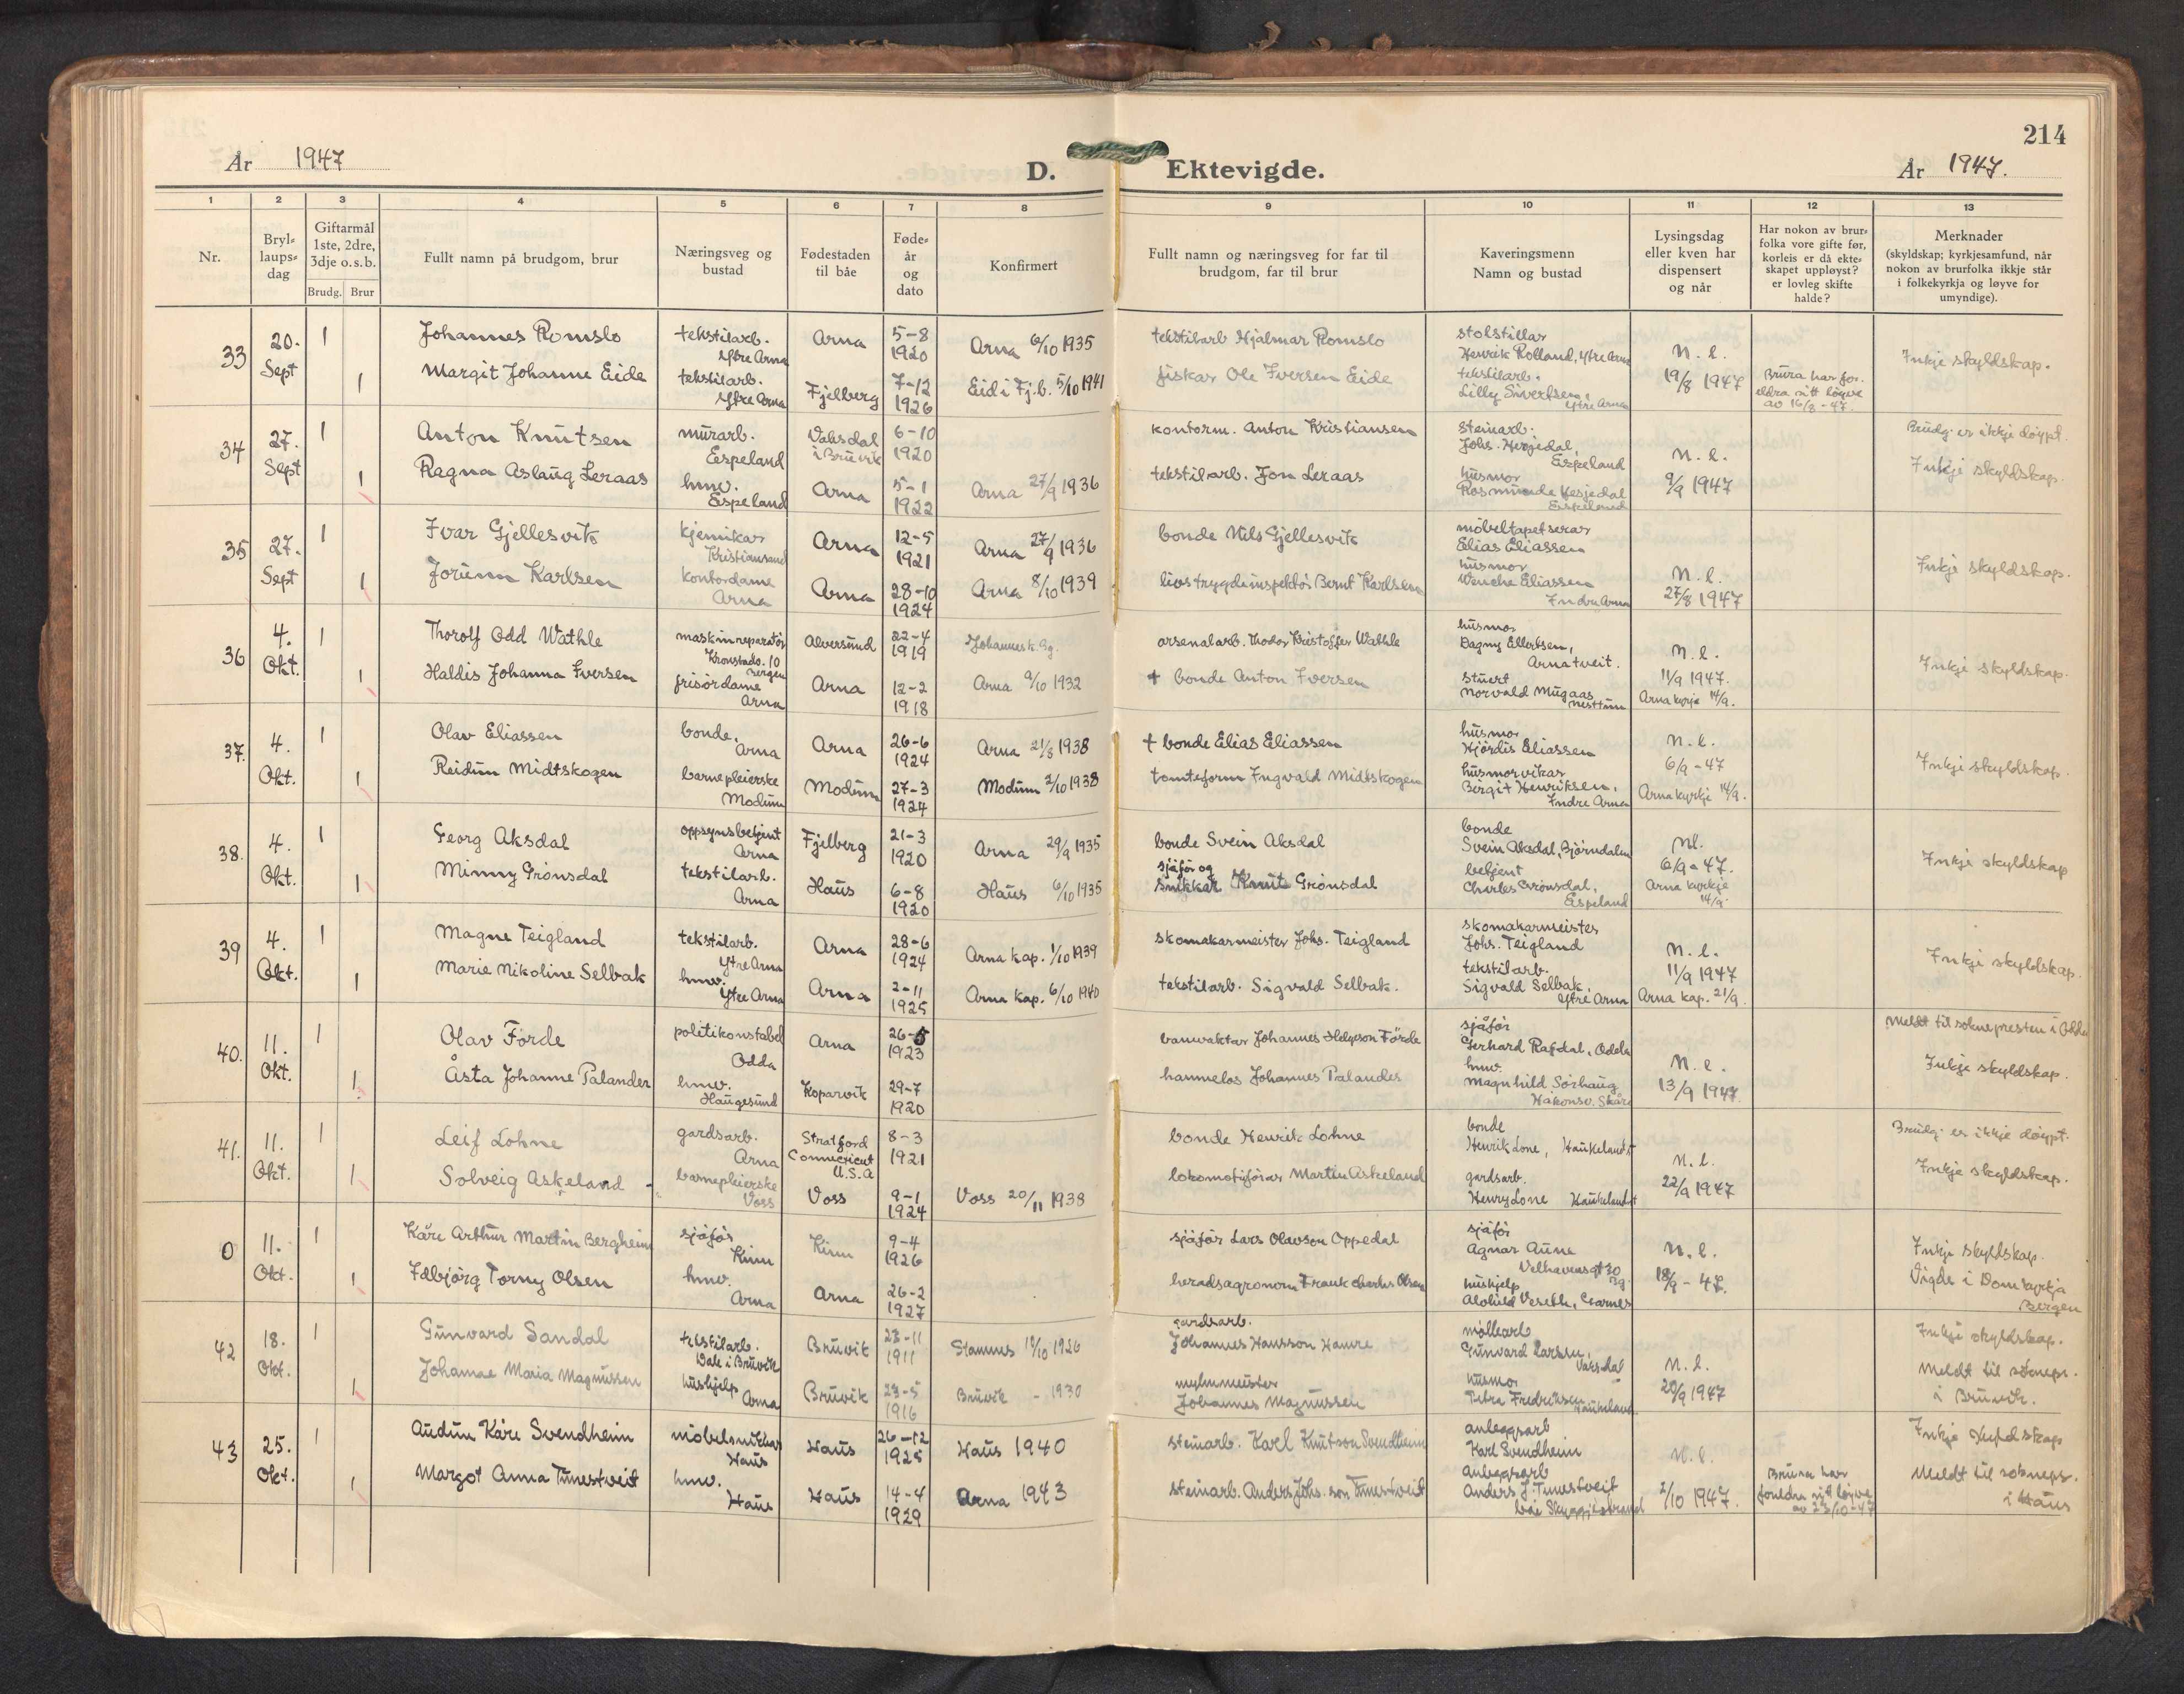 214
År 1947 D. Ektevigde. År 1947.
1 2 3 4 5 6 7 8 9 10 11 12 13
Nr.
Bryl-
laups-
dag
Giftarmål
1ste, 2dre,
3dje o.s.b.
Brudg. Brur
Fullt namn på brudgom, brur
Næringsveg og
bustad
Fødestaden
til båe
Føde-
år
og
dato
Konfirmert
Fullt namn og næringsveg for far til
brudgom, far til brur
Kaveringsmenn
Namn og bustad
Lysingsdag
eller kven har
dispensert
og når
Har nokon av brur-
folka vore gifte før,
korleis er då ekte-
skapet uppløyst?
er lovleg skifte
halde?
Merknader
(skyldskap; kyrkjesamfund, når
nokon av brurfolka ikkje står
i folkekyrkja og løyve for
umyndige).
33 20. Sept 1 Johannes Romslo tekstilarb. Ytre Arna Arna 5-8 1920 Arna 6/10 1935 tekstilarb Hjalmar Romslo stolstillar Henrik Rolland, Ytre Arna n. l. Inkje skyldskap.
1 Margit Johanne Eide tekstilarb. Ytre Arna Fjelberg 7-12 1926 Eid i Fj.b. 5/10 1941 fiskar Ole Iversen Eide tekstilarb. Lilly Sivertsen, Ytre Arna 19/8 1947 Brura har for. eldra sitt løyve av 16/8-47.
34 27. Sept 1 Anton Knutsen murarb. Espeland Vaksdal i Bruvik 6-10 1920 kontorm. Anton Kristiansen steinarb. Johs. Hesjedal, Espeland n. l. Brudg. er ikkje døypt.
1 Ragna Aslaug Leraas hmv. Espeland Arna 5-1 1922 Arna 27/9 1936 tekstilarb. Jon Leraas husmor Rosmunde Hesjedal Espeland 9/9 1947 Inkje skyldskap.
35 27. Sept 1 Ivar Gjellesvik kjemikar Kristiansand Arna 12-5 1921 Arna 27/9 1936 bonde Nils Gjellesvik møbeltapetserar Elias Eliassen n. l. Inkje skyldskap.
1 Jorunn Karlsen kontordame Arna Arna 28-10 1924 Arna 8/10 1939 livstrygdeinspektør Bernt Karlsen husmor Wenche Eliassen Indre Arna 27/8 1947
36 4. Okt. 1 Thorolf Odd Wathle maskinreparatør Kronstadv. 10 Bergen Alversund 22-4 1919 Johannesk. Bg. arsenalarb. Thodor Kristoffer Wathle husmor Dagny Ellertsen, Arnatveit. n. l. Inkje skyldskap.
1 Haldis Johanna Iversen frisørdame Arna Arna 12-2 1918 Arna 9/10 1932 + bonde Anton Iversen stuert Norvald Mugaas Nesttun 11/9 1947. Arna kyrkje 14/9.
37. 4. Okt. 1 Olav Eliassen bonde, Arna Arna 26-6 1924 Arna 21/8 1938 + bonde Elias Eliassen husmor Hjördis Eliassen n. l. Inkje skyldskap.
1 Reidun Midtskogen barnepleierske Modum Modum 27-3 1924 Modum 2/10 1938 tomteform Ingvald Midtskogen husmorvikar Bergit Henriksen, Indre Arna 6/9-47 Arna kyrkje 14/9.
38. 4. Okt. 1 Georg Aksdal oppsynsbetjent Arna Fjelberg 21-3 1920 Arna 29/9 1935 bonde Svein Aksdal bonde Svein Aksdal, Bjørndalen nl. Inkje skyldskap
1 Minny Grønsdal tekstilarb. Arna Haus 6-8 1920 Haus 6/10 1935 sjåfør og snikkar Knut Grønsdal betjent Charles Grønsdal, Espeland 6/9-47. Arna kyrkje 14/9.
39 4. Okt. 1 Magne Teigland tekstilarb. Ytre Arna Arna 28-6 1924 Arna kap. 1/10 1939 skomakarmeister Johs. Teigland skomakarmeister Johs. Teigland n. l. Inkje skyldskap.
1 Marie Nikoline Selbak hmv. Ytre Arna Arna 2-11 1925 Arna kap. 6/10 1940 tekstilarb. Sigvald Selbak. tekstilarb. Sigvald Selbak, Ytre Arna 11/9 1947 Arna kap. 21/9.
40. 11. Okt. 1 Olav Førde politikonstabel Odda Arna 26-5 1923 banevaktar Johannes Helgeson Førde sjåfør Gerhard Rafdal, Odda n. l. Meldt til soknepresten i Odda
1 Åsta Johanne Palander hmv. Haugesund Koparvik 29-7 1920 hamnelos Johannes Palander hmv. Magnhild Sørhaug Håkonsv. Skåre 13/9 1947. Inkje skyldskap.
41. 11. Okt. 1 Leif Lohne gardsarb. Arna Stratford Connecticut U.S.A 8-3 1921 bonde Henrik Lohne bonde Henrik Lone, Haukeland st n. l. Brudg. er ikkje døypt.
1 Solveig Askeland barnepleierske Voss Voss 9-1 1924 Voss 20/11 1938 lokomotivførar Martin Askeland gardsarb. Henry Lone Haukeland st 22/9 1947 Inkje skyldskap.
0 11. Okt. 1 Kåre Arthur Martin Bergheim sjåfør Kinn Kinn 9-4 1926 sjåfør Lars Olavson Oppedal sjåfør Agnar Aune Velhavensgt 30 Bg. n. l. Inkje skyldskap.
1 Idbjørg Torny Olsen hmv. Arna Arna 26-2 1927 heradsagronom Frank Charles Olsen hushjelp Alvhild Veseth, Garnes 18/9-47. Vigde i Domkyrkja Bergen
42 18. Okt. 1 Gunvard Sandal tekstilarb. Dale i Bruvik Bruvik 23-11 1911 Stamnes 10/10 1926 gardsarb. Johannes Hansson Hamre møllearb Gunvard Larsen, Vaksdal n. l. Inkje skyldskap.
1 Johanne Maria Magnussen hushjelp Arna Bruvik 23-5 1916 Bruvik - 1930 Johannes Magnussen husmor Petra Fredriksen Haukeland 20/9 1947 Meldt til soknepr. i Bruvik.
43 25. Okt. 1 Audun Kåre Svendheim møbelsnikkar Haus Haus 26-12 1925 Haus 1940 steinarb. Karl Knutson Svendheim anleggsarb Karl Svendheim n. l. Inkje skyldskap
1 Margot Anna Tunestveit hmv. Haus Haus 14-4 1929 Arna 1943 steinarb. Anders Johs. son Tunestveit anleggsarb Anders J. Tunestveit 2/10 1947. Brura har foreldra sitt løyve av 23/10-47 Meldt til soknepr. i Haus